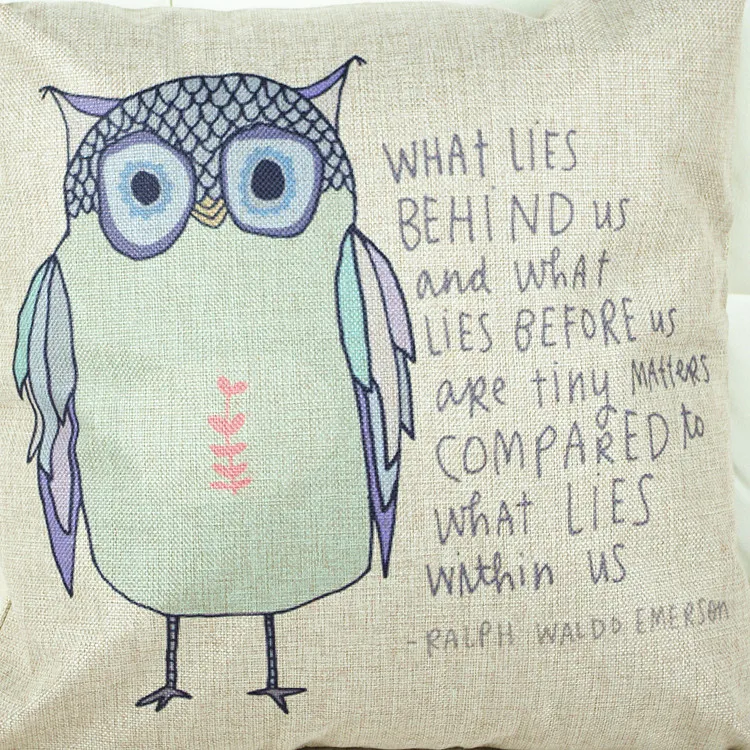 WHAt LiES
BEHiND us
and WhAt
LIES BEFORE us
are tiny MAttERS
COMPARED to
what LIES
within us
-RALPH WALDO EMERSON